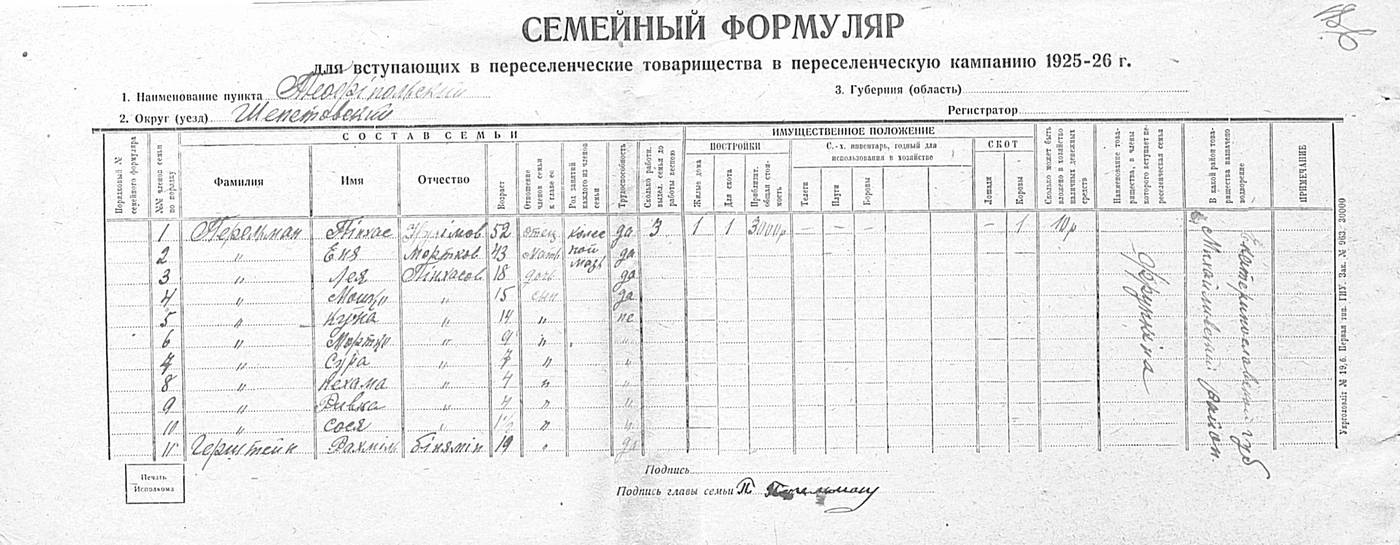 СЕМЕЙНЫЙ ФОРМУЛЯР
для вступающих в переселенческие товарищества в переселенческую кампанию 1925-26 г.
1. Наименование пункта Теофіпольский
3. Губерния (область)
2. Округ (уезд) Шепетовский
Регистратор
СОСТАВ СЕМЬИ
ИМУЩЕСТВЕННОЕ ПОЛОЖЕНИЕ
ПОСТРОЙКИ
С.-х. инвентарь, годный для использования в хозяйстве
СКОТ
Порядковый № семейного формуляра
№№ членов семьи по порядку
Фамилия
Имя
Отчество
Возраст
Отношение членов семьи к главе ее
Род занятий каждого из членов семьи
Трудоспособность
Сколько работн. выдел. семья до работы весною
Жилых дома
Для скота
Приблизит. общая стоимость
Телеги
Плуги
Бороны
Лошади
Коровы
Сколько может быть вложено в хозяйство наличных денежных средств
Наименование товарищества, в члены которого вступает переселенческая семья
В какой район товарищества назначено водворение
ПРИМЕЧАНИЕ
1 Перельман Пінхас 52 отец колес да 3 1 1 3000р — — — — 1 10р
2 " Еня Мортков 43 ной мазь да
3 " Лея Пінхасов 18 дочь да
4 " Мошко " 15 сын да
5 " " 14 " не
6 " Мортко " 9 " "
7 " Сура " 7 " "
8 " Нехама " 4 " "
9 " Ривка " 4 " "
10 " Сося " "
11 Герштейн Рахміль Бінямін 19 " да
Фрункіна
Екатеринославский губ
район.
Печать Исполкома
Подпись
Подпись главы семьи П.
Укрголовліт № 19,6. Первая тип. ГИУ. Зак. № 963. 30000